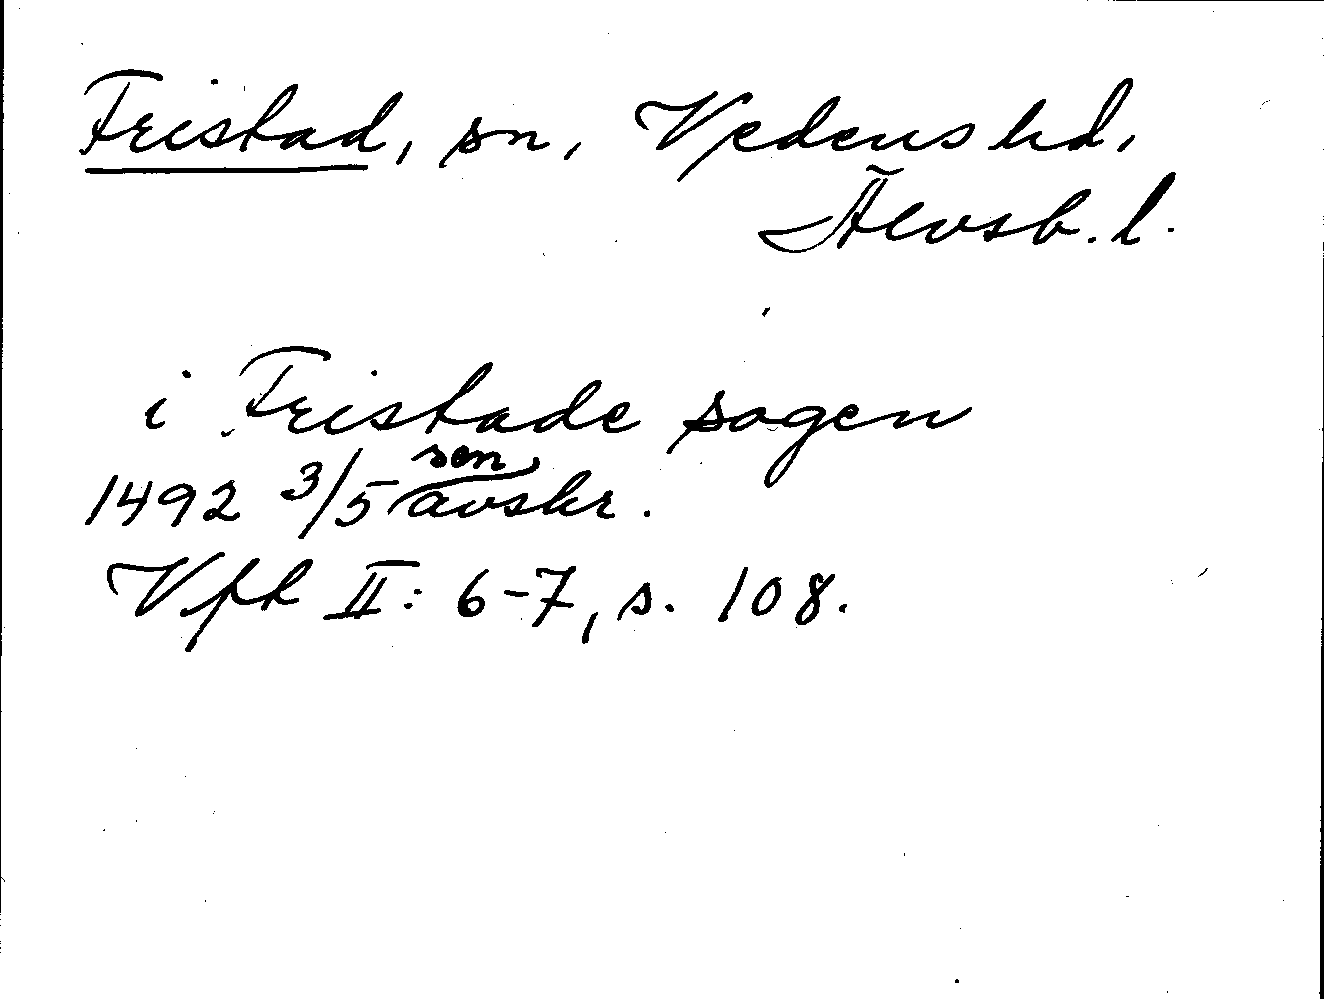 Fristad, sn, Vedens hd,
Älvsb. l.
i Fristade sogen
1492 3/5 sen avskr.
Vfk II: 6-7, s. 108.